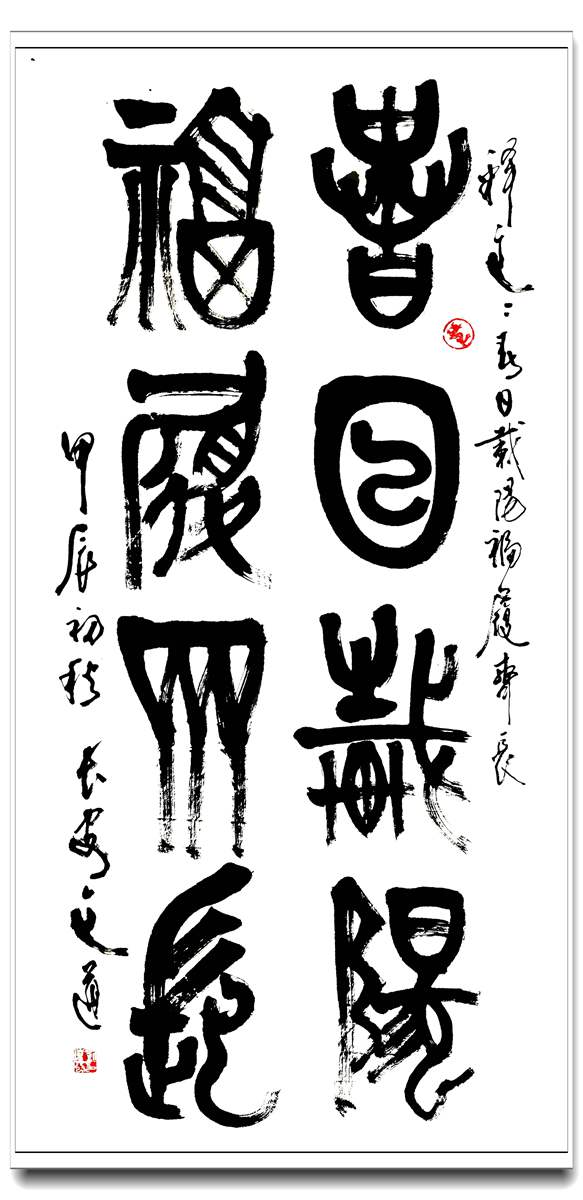 釋文：春日載陽福履齊長
春日載陽
福履齊長
甲辰初秋長安文道